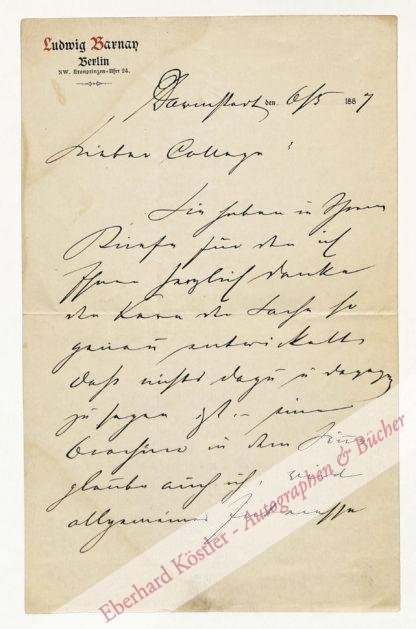 Ludwig Barnay
Berlin
NW. Kronprinzen-Ufer 24.
Darmstadt den 6/5 1887
Lieber College!
Sie haben in Ihrem
Briefe für den ich
Ihnen herzlich danke
den Kern der Sache so
genau entwickelt,
daß nichts dazu u dagegen
zu sagen ist. – eine
Brochüre in dem Sinne
glaube auch ich, wird
allgemeines Interesse
Eberhard Köstler - Autographen & Bücher